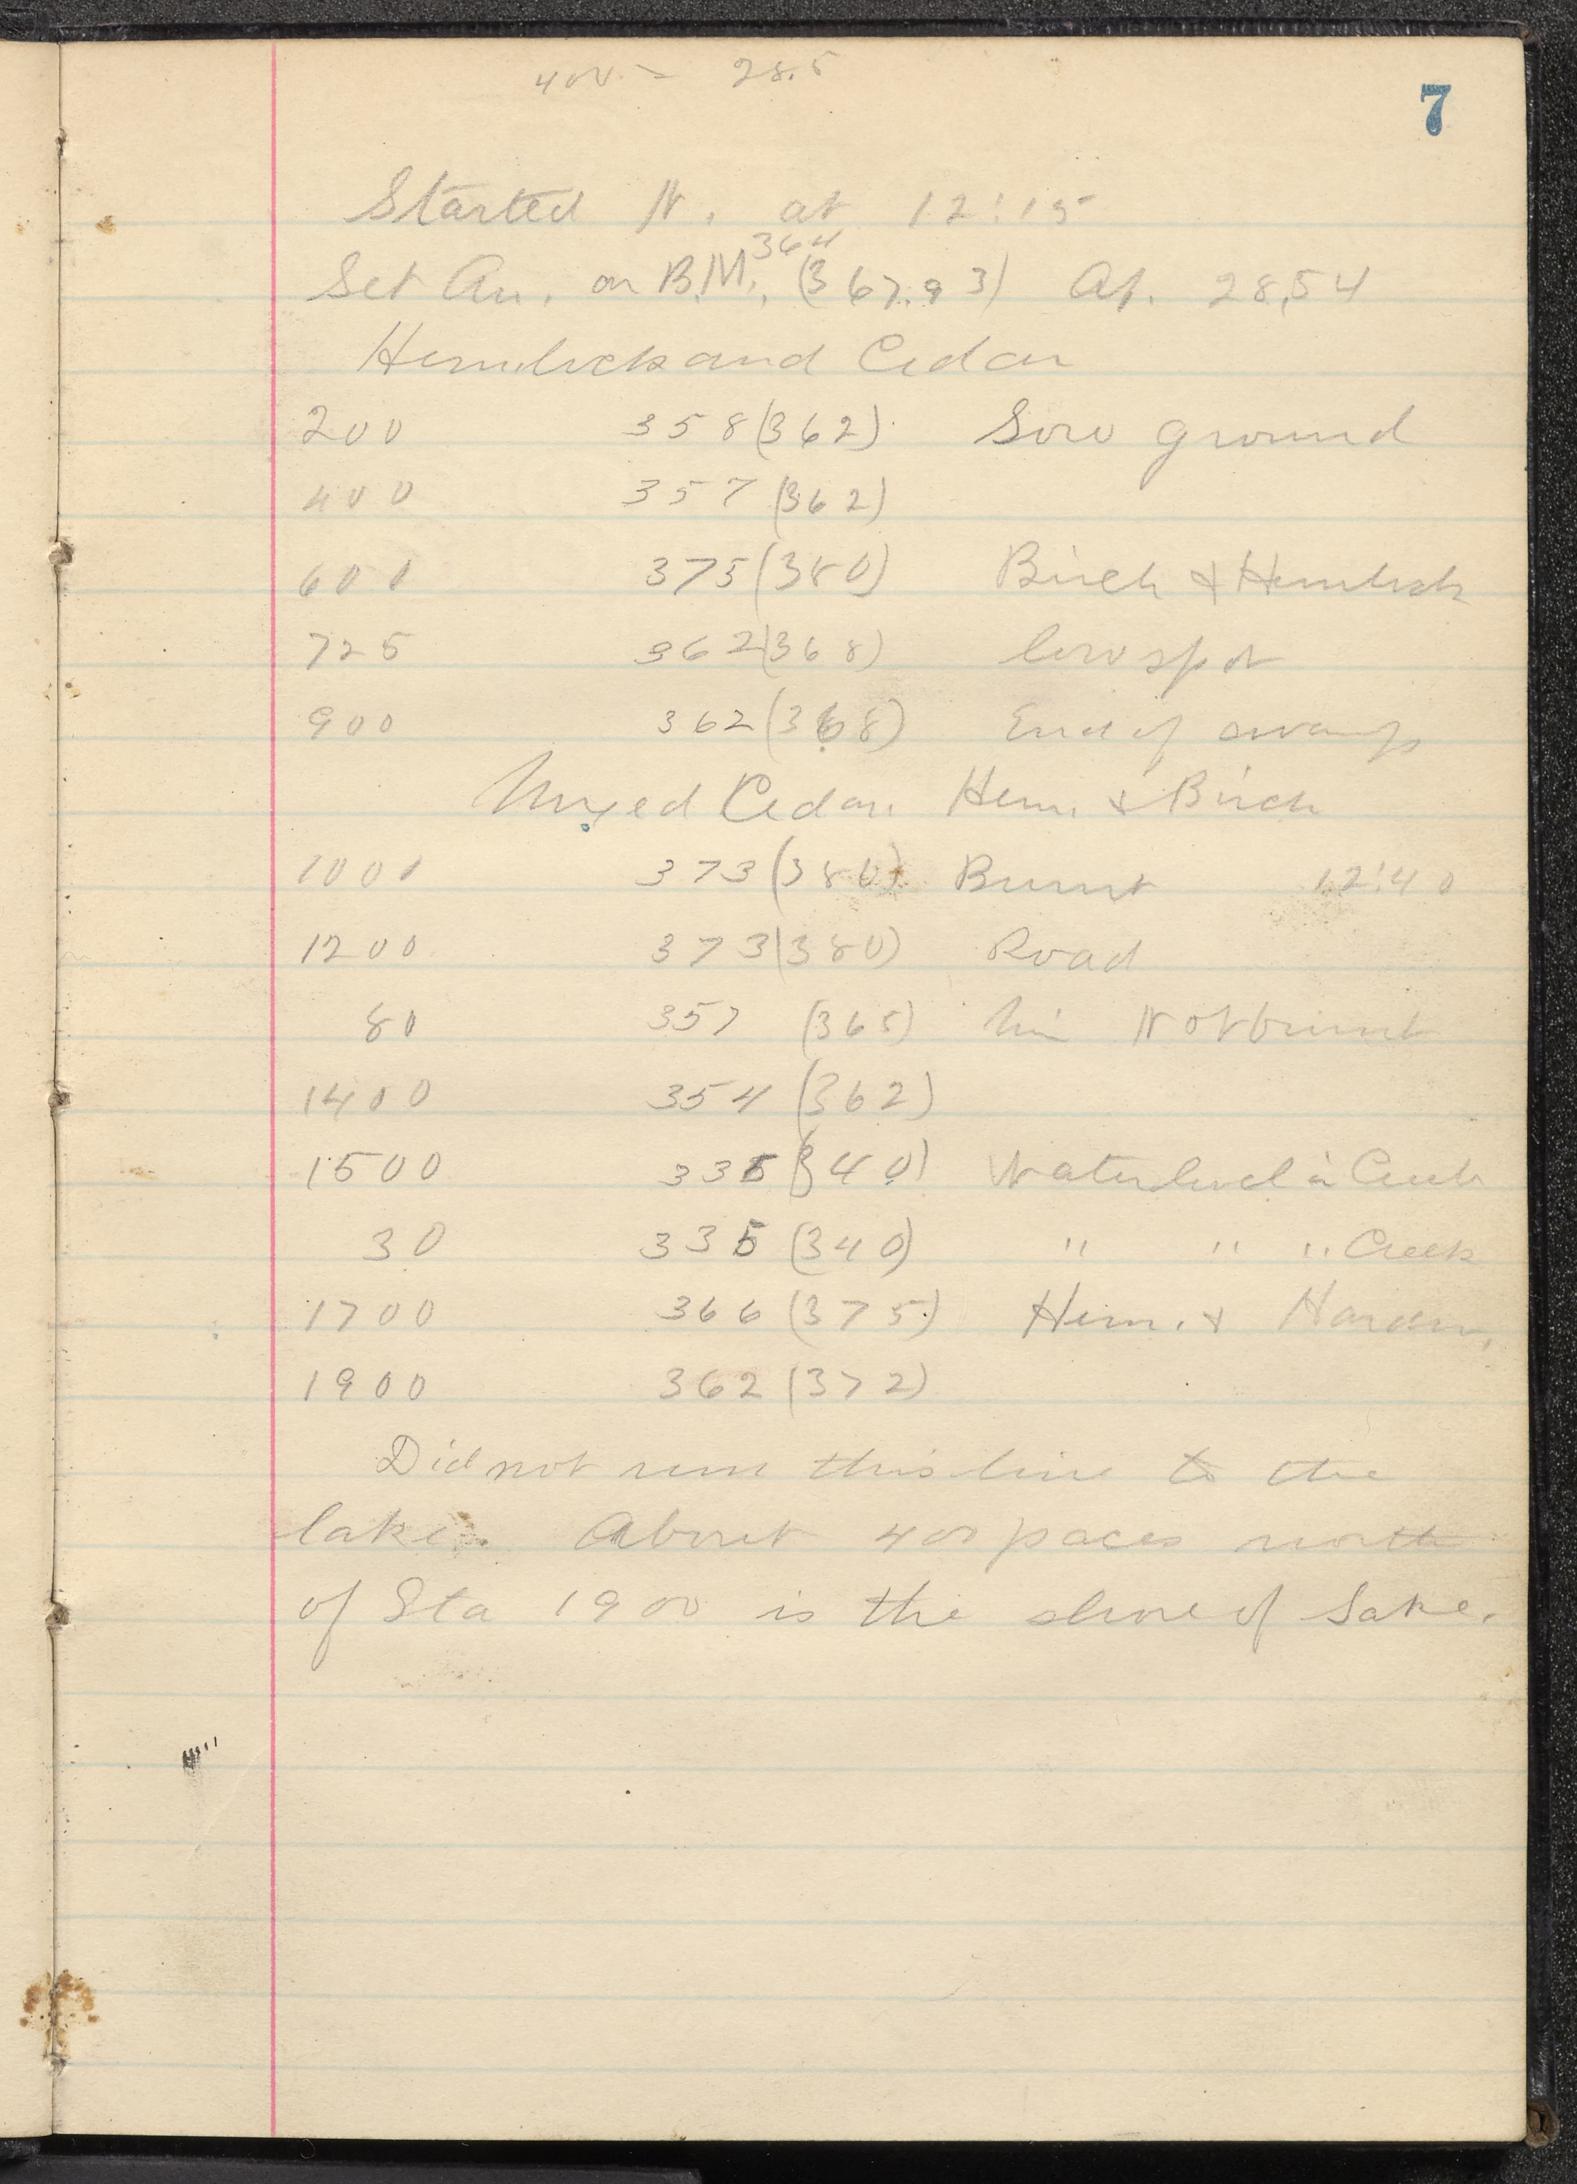 400 = 28.5
7
Started N. at 12:15
364
Set An. on B.M. (367.93) At. 28.54
Hemlock and Cedar
200 358 (362) Low ground
400 357 (362)
600 375 (380) Birch & Hemlock
725 362 (368) low spot
900 362 (368) End of swamp
Mixed Cedar Hem. & Birch
1000 373 (380) Burnt 12:40
1200 373 (380) Road
80 357 (365) Not burnt
1400 354 (362)
1500 335 (340) Water level in Creek
30 335 (340) " " " Creek
1700 366 (375) Hem. & Hardw.
1900 362 (372)
Did not run this line to the
lake. About 400 paces north
of Sta 1900 is the shore of Lake.